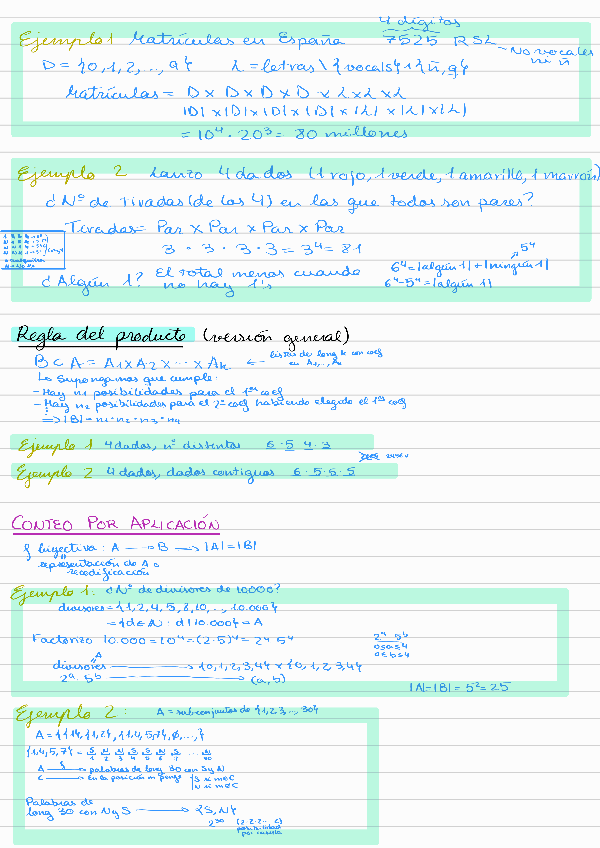 4 dígitos
Ejemplo 1 Matrículas en España 7525 RSL
No vocales ni ñ
D = {0,1,2,...,9} L = letras \ {vocals} \ {ñ,q}
Matrículas = D x D x D x D x L x L x L
|D| x |D| x |D| x |D| x |L| x |L| x |L|
= 10⁴ · 20³ = 80 millones
Ejemplo 2 Lanzo 4 dados (1 rojo, 1 verde, 1 amarillo, 1 marrón)
¿Nº de Tiradas (de las 4) en las que todos son pares?
Tiradas = Par x Par x Par x Par
3 · 3 · 3 · 3 = 3⁴ = 81
5⁴
¿Algún 1? El total menos cuando no hay 1's
6⁴ = |algún 1| + |ningún 1|
6⁴ - 5⁴ = |algún 1|
Regla del producto (versión general)
B ⊂ A = A₁ x A₂ x ... x Aₖ ← listas de long k con coef en A₁,...,Aₖ
Lo Supongamos que cumple:
- Hay n₁ posibilidades para el 1er coef
- Hay n₂ posibilidades para el 2º coef habiendo elegido el 1er coef
⋮
⇒ |B| = n₁ · n₂ · n₃ · n₄
Ejemplo 1 4 dados, nº distintos 6 · 5 · 4 · 3
Ejemplo 2 4 dados, dados contiguos 6 · 5 · 5 · 5
CONTEO POR APLICACIÓN
f biyectiva: A → B → |A| = |B|
representación de A o recodificación
Ejemplo 1: ¿Nº de divisores de 10000?
divisores = {1,2,4,5,8,10,...,10.000}
= {d ∈ N : d | 10.000} = A
Factorizo 10.000 = 10⁴ = (2·5)⁴ = 2⁴ 5⁴
2ᵃ 5ᵇ
0≤a≤4
0≤b≤4
A
divisores → {0,1,2,3,4} x {0,1,2,3,4}
2ᵃ · 5ᵇ → (a,b)
|A| = |B| = 5² = 25
Ejemplo 2: A = subconjuntos de {1,2,3,...,30}
A = {{1}, {1,2}, {1,4,5,7}, ∅, ...}
{1,4,5,7} = S N N S S N S ... N
1 2 3 4 5 6 7 30
A → palabras de long 30 con S y N
C → en la posición m pongo { S si m∈C
N si m∉C
Palabras de
long 30 con N y S → {S,N}
2³⁰ (2·2·2... 2)
posibilidad por casilla